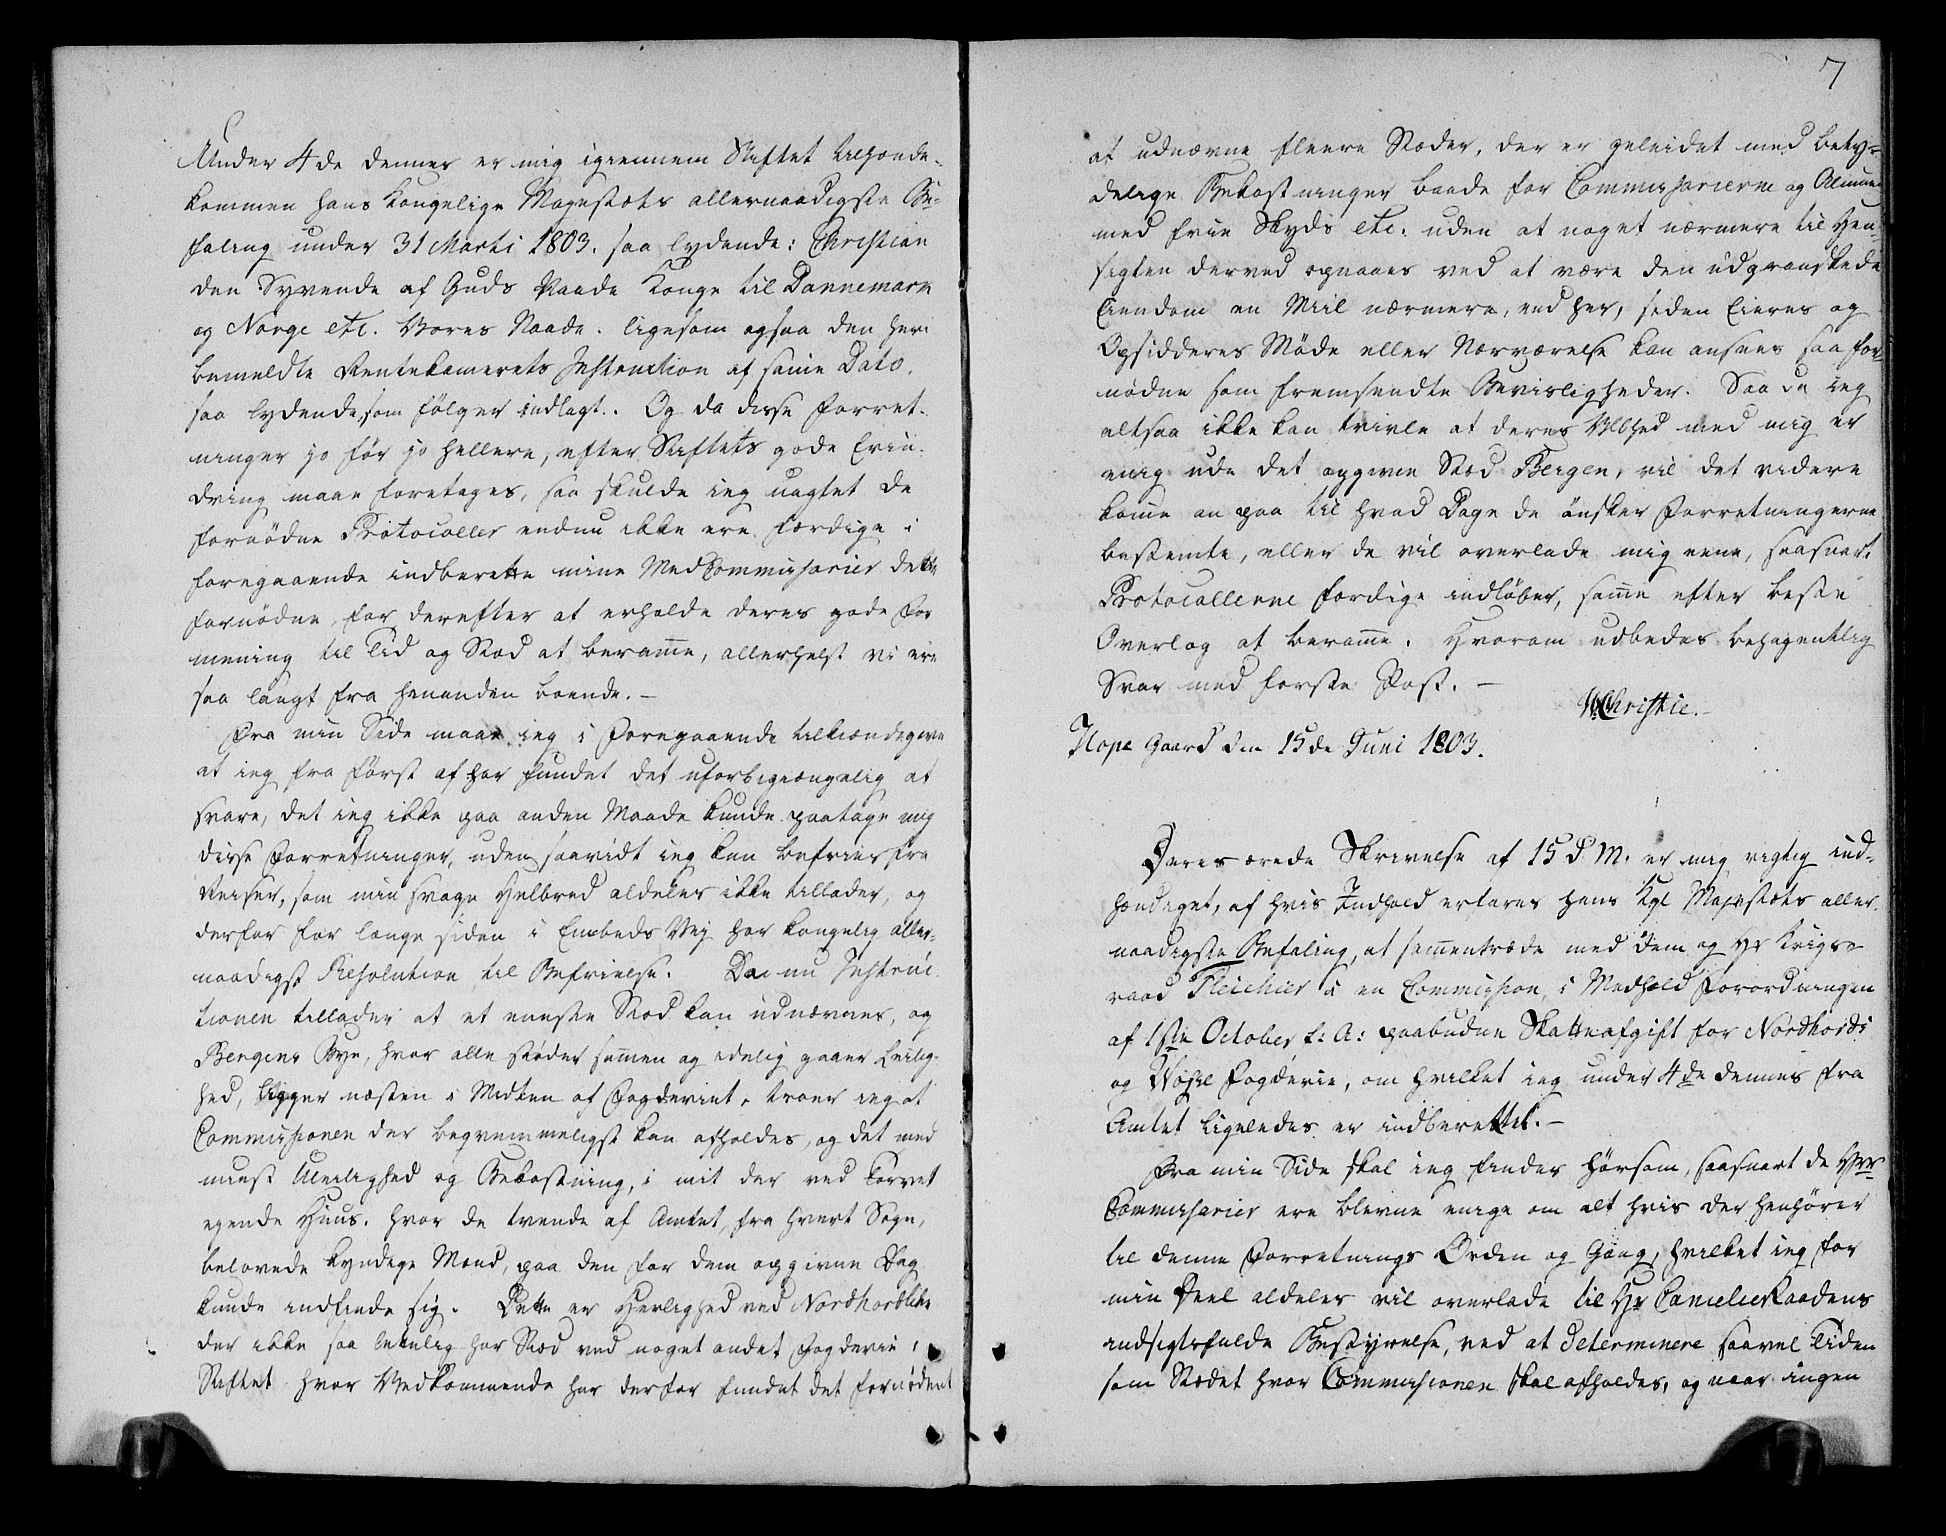 Under 4de dennes er mig igiennem Stiftet tilhænde-
kommen Hans Kongelige Mayestæts allernaadigste Be-
faling under 31 Marti 1803. saa lydende: Christian
den Syvende af Guds Naade Konge til Dannemark
og Norge etc. Vores Naade. ligesom ogsaa den heri
bemeldte Rentekamerets Instruction af samme Dato,
saa lydende, som følger indlagt. Og da disse Forret-
ninger jo før jo hellere, efter Stiftets gode Erin-
dring maae foretages, saa skulde ieg uagtet de
fornødne Protocoller endnu ikke ere færdige i
foregaaende indberette mine MedCommissarier dette
fornødne, for derefter at erholde deres gode For
mening til Tid og Stæd at beramme, allerhelst vi ere
saa langt fra hinanden boende. –
Fra min Side maae ieg i Foregaaende tilkiendegive
at ieg fra først af har fundet det uforbigiængelig at
svare, det ieg ikke paa anden Maade kunde paatage mig
disse Forretninger, uden saavidt ieg kan befries fra
Reiser, som min svage Helbred aldeles ikke tillader, og
derfor for lange siden i Embeds Vej har kongelig aller-
naadigst Resolution til Befrielse. Da nu Instruc
tionen tillader at et eeneste Stæd kan udnævnes, og
Bergens Bye, hvor alle støder sammen og idelig gaaer Leilig-
hed, ligger næsten i Midten af Fogderiet, troer ieg at
Commissionen der beqvemmeligst kan afholdes, og det med
minst Uleilighed og Bekostning, i mit der ved Torvet
egende Huus. hvor de tvende af Amtet, fra hvert Sogn,
belovede kyndige Mænd, paa den for dem opgivne Dag
kunde indfinde sig. Dette er Herlighed ved Nordhordlehn
der ikke saa bekvelig har Stæd ved noget andet Fogderie i
Stiftet hvor Vedkommende har derfor fundet det fornødent
7
at udnævne fleere Stæder, der er geleidet med bety-
delige Bekostninger baade for Commissarierne og Almue
med frie Skyds etc. uden at noget nærmere til Hen-
sigten derved opnaaes ved at være den udgranskede
Eiendom en Miil nærmere, end her, siden Eieres og
Opsidderes Møde eller Nærværelse kan ansees saa for-
nødne som fremsendte Bevisligheder. Saa da ieg
altsaa ikke kan tvivle at deres Villighed med mig er
enig ude det opgivne Stæd Bergen, vil det videre
komme an paa til hvad Dage de ønsker Forretningerne
bestemte, eller de vil overlade mig eene, saasnart
Protocollerne færdige indløber, samme efter beste
Overlæg at beramme. Hvorom udbedes behagentlig
Svar med første Post. –
WChristie.
Hope Gaard den 15de Juni 1803.
Deres ærede Skrivelse af 15 d. M. er mig rigtig ind-
hændiget, af hvis Indhold erfares Hans Kgl Majestæts aller-
naadigste Befaling, at sammentræde med dem og Hr Krigs-
raad Fleischer i en Commission, i Medhold Forordningen
af 1ste October f: A: paabudne Skatteafgift for Nordhords
og Woss Fogderie, om hvilket ieg under 4de dennes fra
Amtet ligeledes er indberettet. –
Fra min Side skal ieg findes hørsom, saasnart de Hrr
Commissarier ere blevne enige om alt hvis der henhører
til denne Forretnings Orden og Gang, hvilket ieg for
min Deel aldeles vil overlade til Hr CancelieRaadens
indsigtsfulde Bestyrelse, ved at determinere saavel Tiden
som Stædet hvor Commissionen skal afholdes, og naar ingen